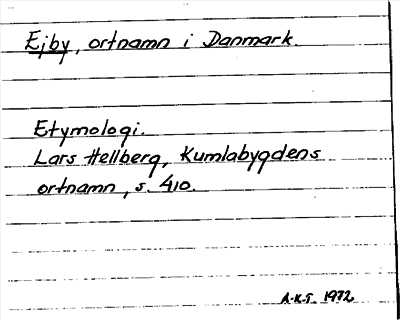 Ejby, ortnamn i Danmark.
Etymologi.
Lars Hellberg, Kumlabygdens
ortnamn, s. 410.
A.K.S. 1972